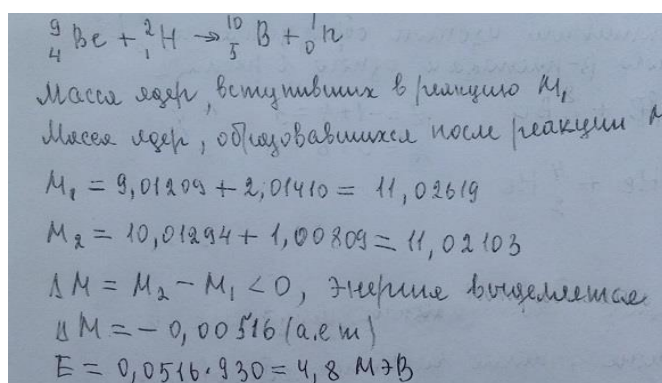 ⁹₄Be + ²₁H → ¹⁰₅B + ¹₀n
Масса ядер, вступивших в реакцию M₁
Масса ядер, образовавшихся после реакции M
M₁ = 9,01209 + 2,01410 = 11,02619
M₂ = 10,01294 + 1,00809 = 11,02103
ΔM = M₂ − M₁ < 0, энергия выделяется
ΔM = − 0,00516 (а.е.м)
E = 0,0516·930 = 4,8 МэВ